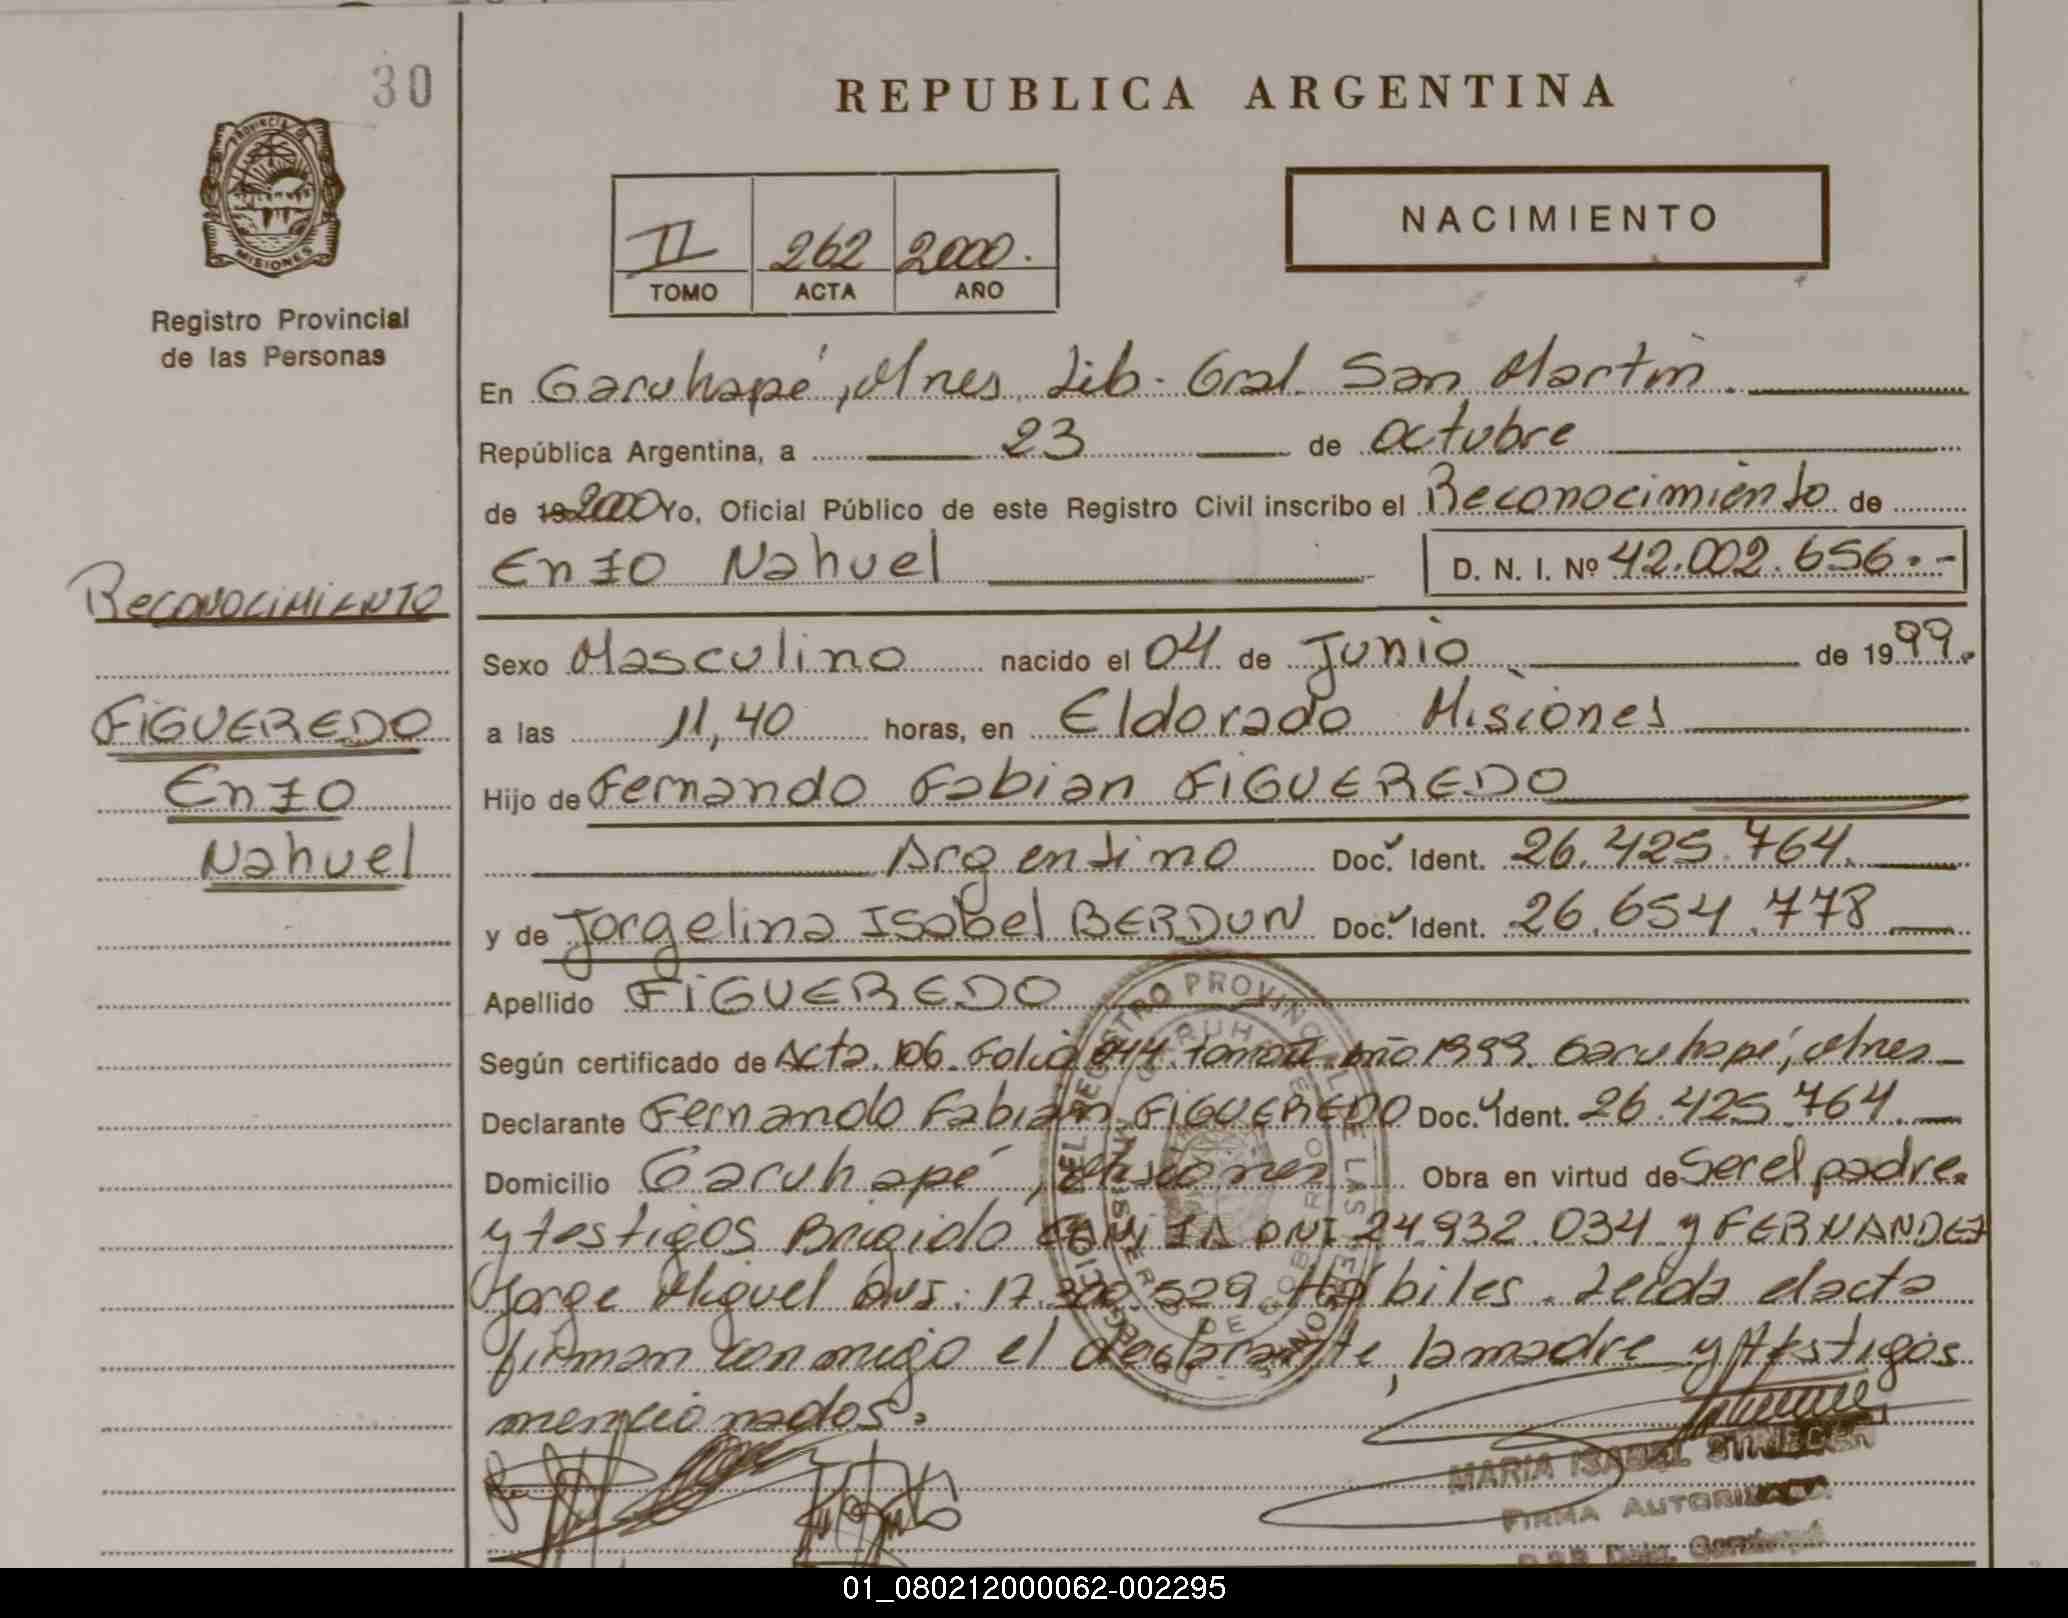 30
REPUBLICA ARGENTINA
PROVINCIA DE
MISIONES
Registro Provincial
de las Personas
II 262 2000.
TOMO ACTA AÑO
NACIMIENTO
En Garuhapé, Mnes, Lib. Gral. San Martin.
República Argentina, a 23 de octubre
de 19 2000 Yo, Oficial Público de este Registro Civil inscribo el Reconocimiento de
Enzo Nahuel D. N. I. Nº 42.002.656.-
Reconocimiento
Sexo Masculino nacido el 04 de Junio de 1999.
FIGUEREDO
a las 11,40 horas, en Eldorado Misiones
Enzo
Hijo de Fernando Fabian FIGUEREDO
Nahuel
Argentino Doc. Ident. 26.425.764.
y de Jorgelina Isabel BERDUN Doc. Ident. 26.654.778
Apellido FIGUEREDO
Según certificado de Acta. 106. Folio 044. tomo II. año 1999. Garuhapé, Mnes
Declarante Fernando Fabian FIGUEREDO Doc. Ident. 26.425.764.
Domicilio Garuhapé, Misiones Obra en virtud de Ser el padre.
y testigos Brigido DNI 24.932.034 y FERNANDEZ
Jorge Miguel DNI. 17.300.529 Hábiles. Leida el acta
firman conmigo el declarante, la madre y testigos
mencionados.
MARIA ISABEL
FIRMA AUTORIZADA
01_080212000062-002295